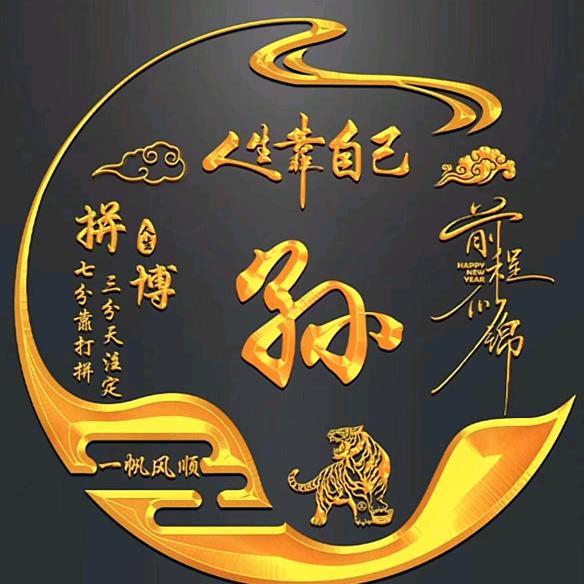 人生靠自己
拼博
人生
三分天注定
七分靠打拼
孙
前程似锦
HAPPY
NEW
YEAR
一帆风顺